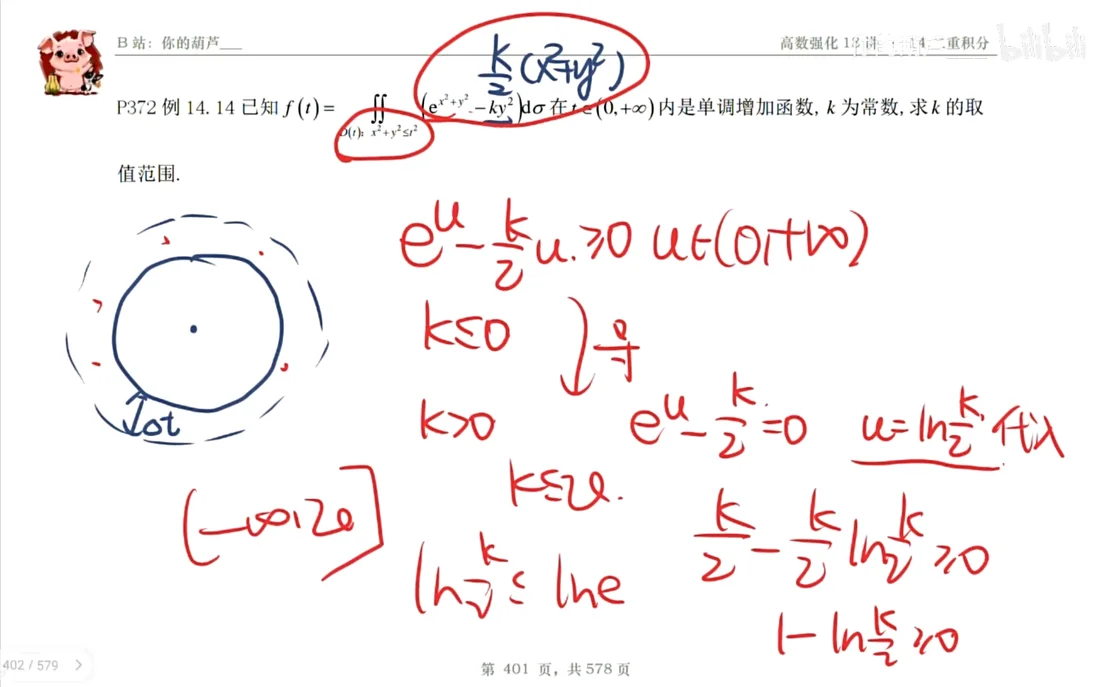 B 站：你的葫芦___
高数强化 13
重积分
bilibili
k/2(x²+y²)
P372 例 14.14 已知 f(t)= ∬ (e^{x²+y²} -ky²)dσ 在 t∈(0,+∞) 内是单调增加函数, k 为常数, 求 k 的取
D(t): x²+y²≤t²
值范围.
e^u - k/2 u ≥0 u∈(0,+∞)
k≤0
导
k>0
e^u - k/2 =0 u=ln k/2 代入
k≤2e.
(-∞,2e]
k/2 - k/2 ln k/2 ≥0
ln k/2 ≤ lne
1- ln k/2 ≥0
402 / 579 >
第 401 页，共 578 页